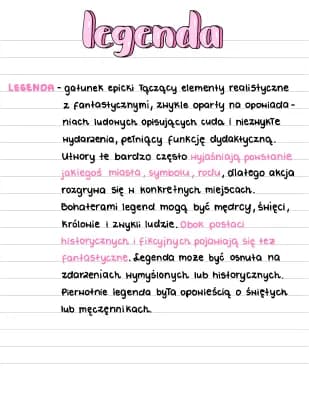 legenda
LEGENDA - gatunek epicki łączący elementy realistyczne
z fantastycznymi, zwykle oparty na opowiada-
niach ludowych opisujących cuda i niezwykłe
wydarzenia, pełniący funkcję dydaktyczną.
Utwory te bardzo często wyjaśniają powstanie
jakiegoś miasta, symbolu, rodu, dlatego akcja
rozgrywa się w konkretnych miejscach.
Bohaterami legend mogą być mędrcy, święci,
królowie i zwykli ludzie. Obok postaci
historycznych i fikcyjnych pojawiają się też
fantastyczne. Legenda może być osnuta na
zdarzeniach wymyślonych lub historycznych.
Pierwotnie legenda była opowieścią o świętych
lub męczennikach.